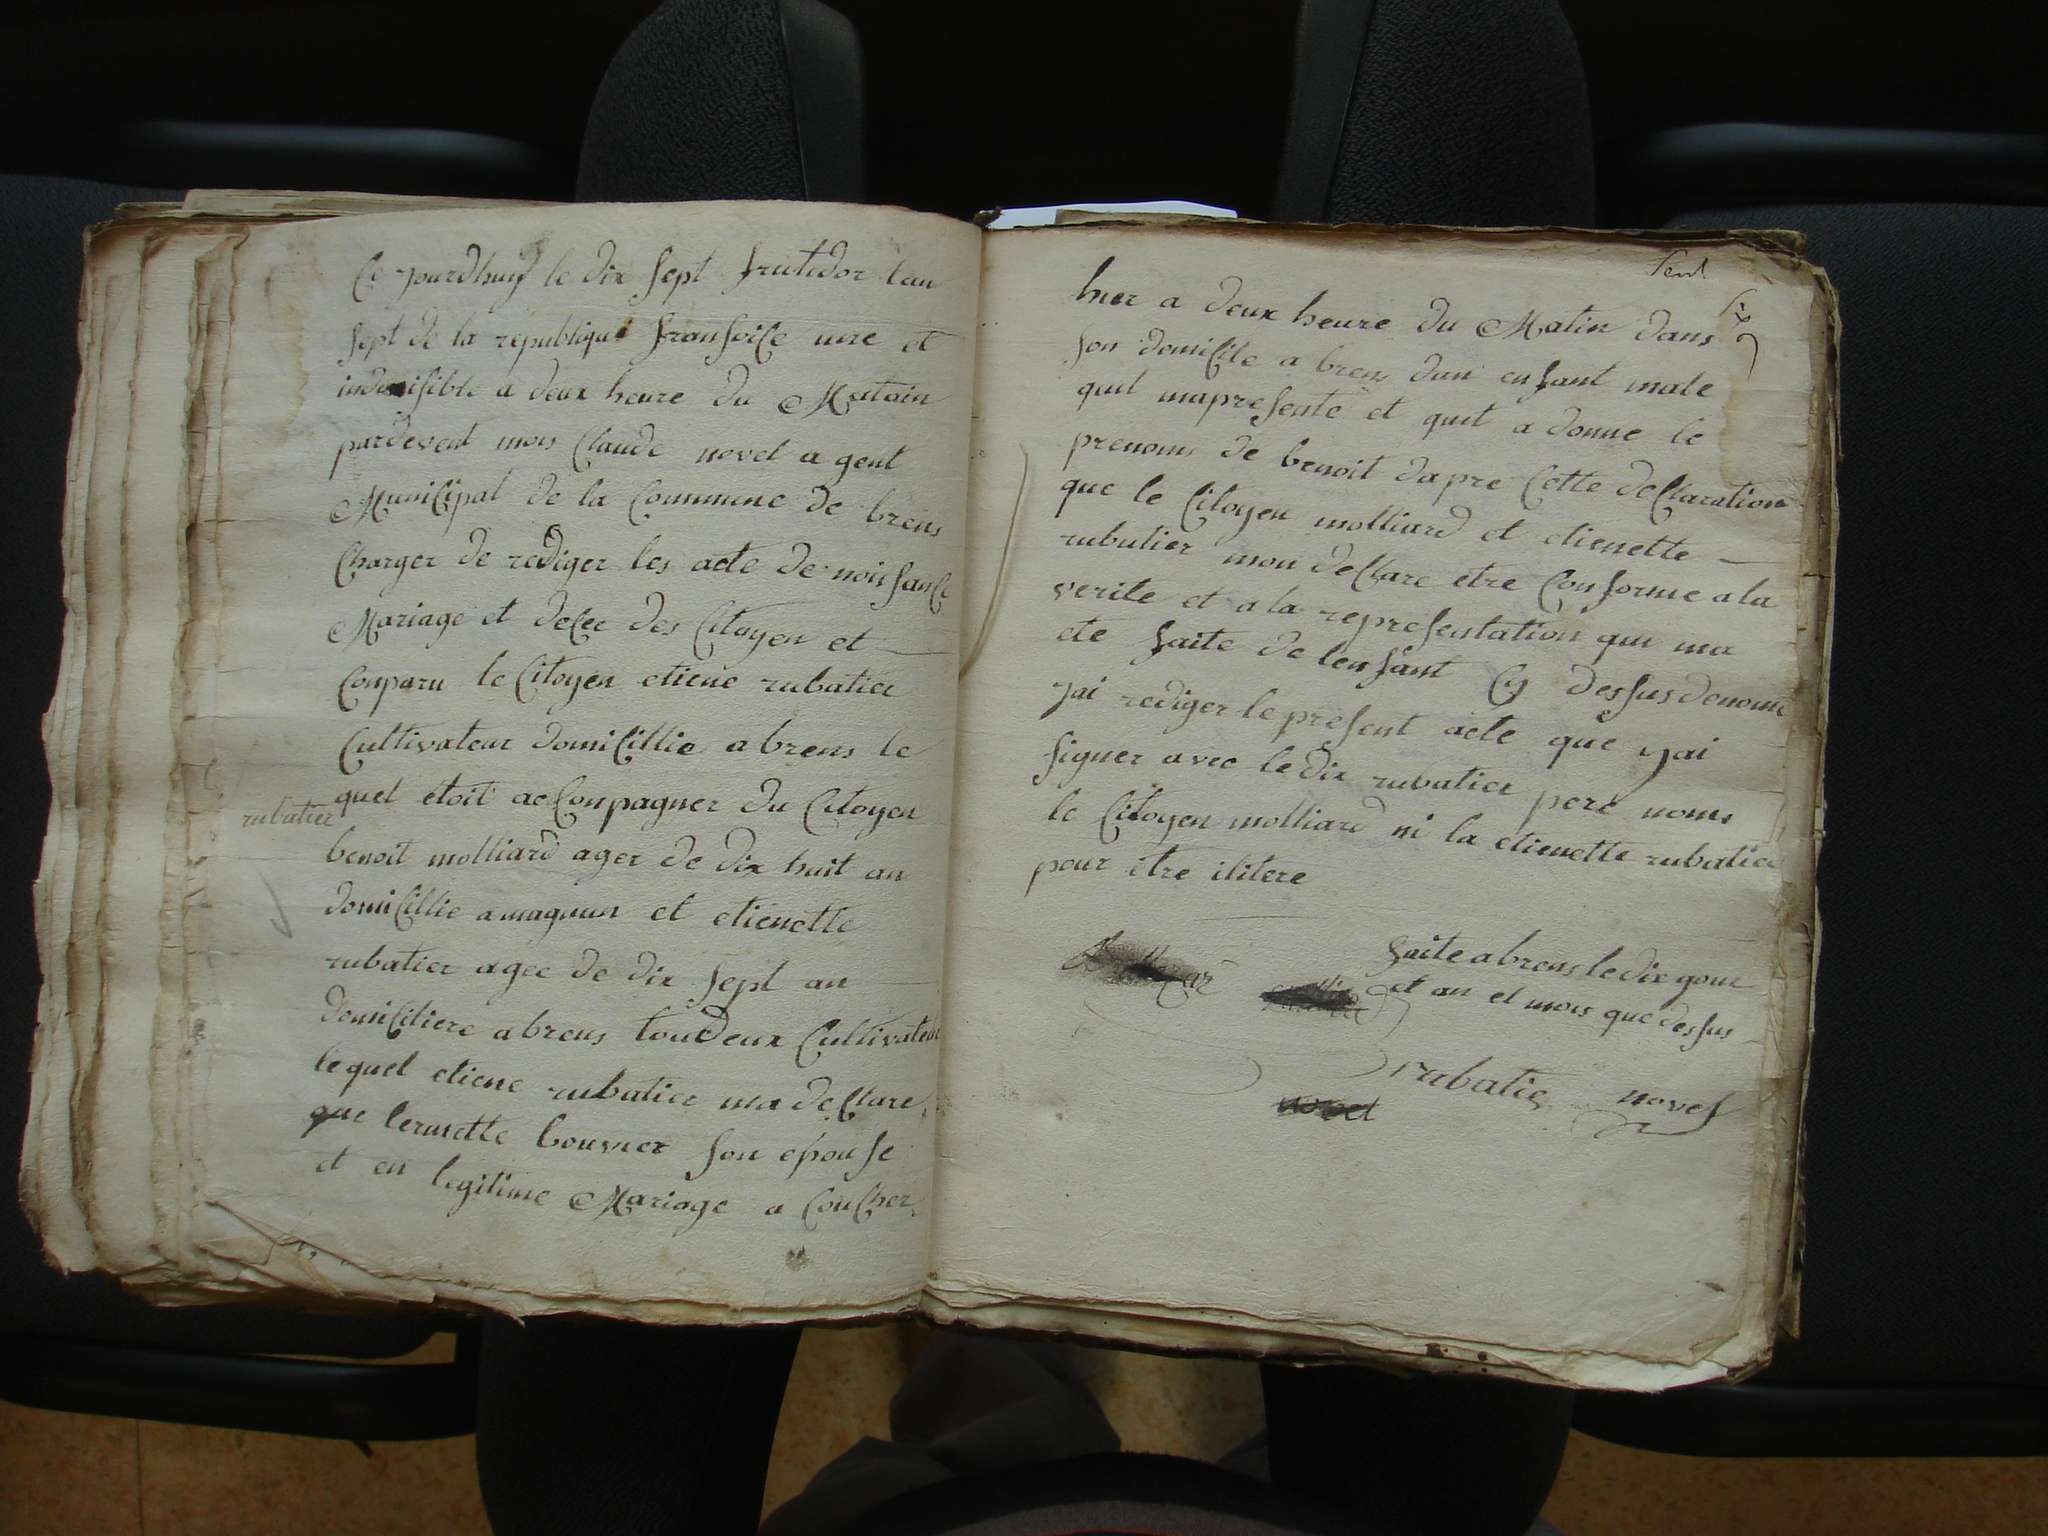 Ce jourdhuy le dix sept frutidor lan
sept de la republique fransoise une et
indivisible a deux heure du Matain
pardevent mois Claude novel agent
Municipal de la Commune de brens
Charger de rediger les acte de noissance
Mariage et decec des Citoyen et
Conparu le Citoyen etiene rubatier
Cultivateur domicillie a brens le
quel étoit acConpagner du Citoyen
rubatier
benoit molliard ager de dix huit an
domicillie a magnun et etienette
rubatier agee de dix sept an
domiciliere a brens toudeux Cultivateur
lequel etiene rubatier ma declare
que bouvier son epouse
et en legitime Mariage a Coucher
hier a deux heure du Matin dans
son domicile a brens dun enfant male
quil mapresente et quil a donne le
prenoms de benoit dapre Cette declaration
que le Citoyen molliard et etienette
rubatier mon declare etre Conforme a la
verite et a la representation qui ma
ete faite de lenfant Cy dessus denome
jai rediger le present acte que jai
signer avec le dix rubatier pere noms
le Citoyen molliard ni la etienette rubatier
pour être ilitere
faite a brens le dix gour
et an et mois que dessus
rubatie novel
novel